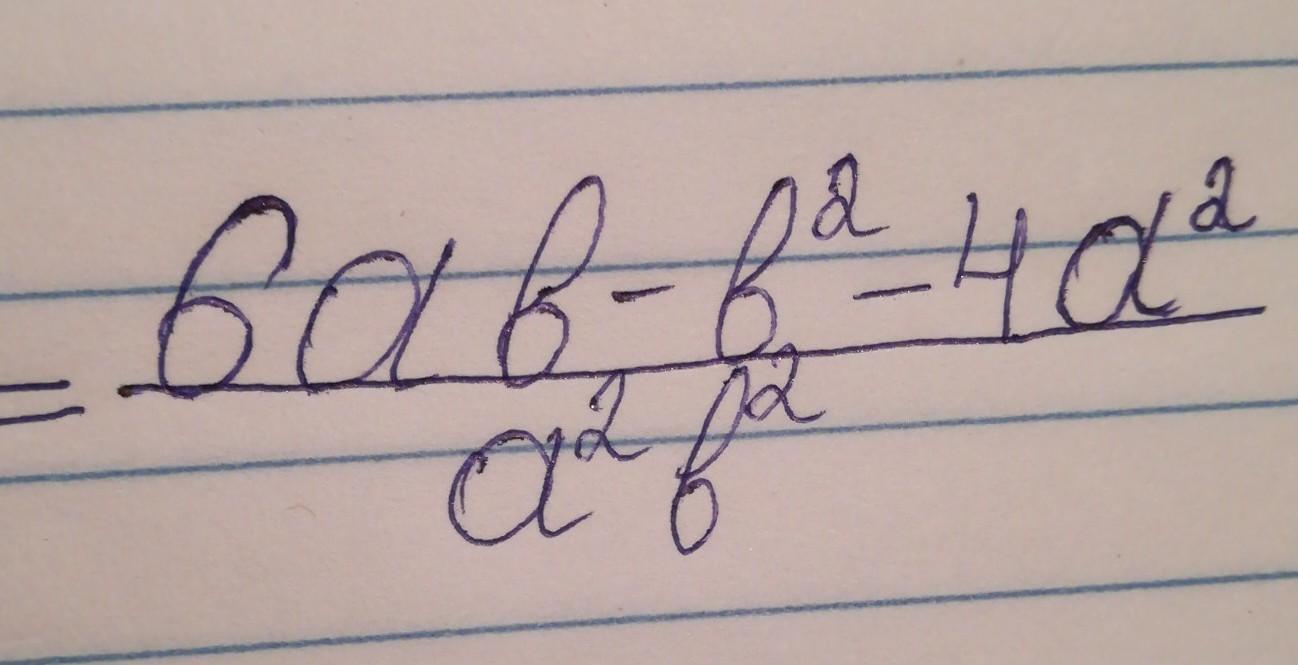 = 6ab - b² - 4a²
a² b²